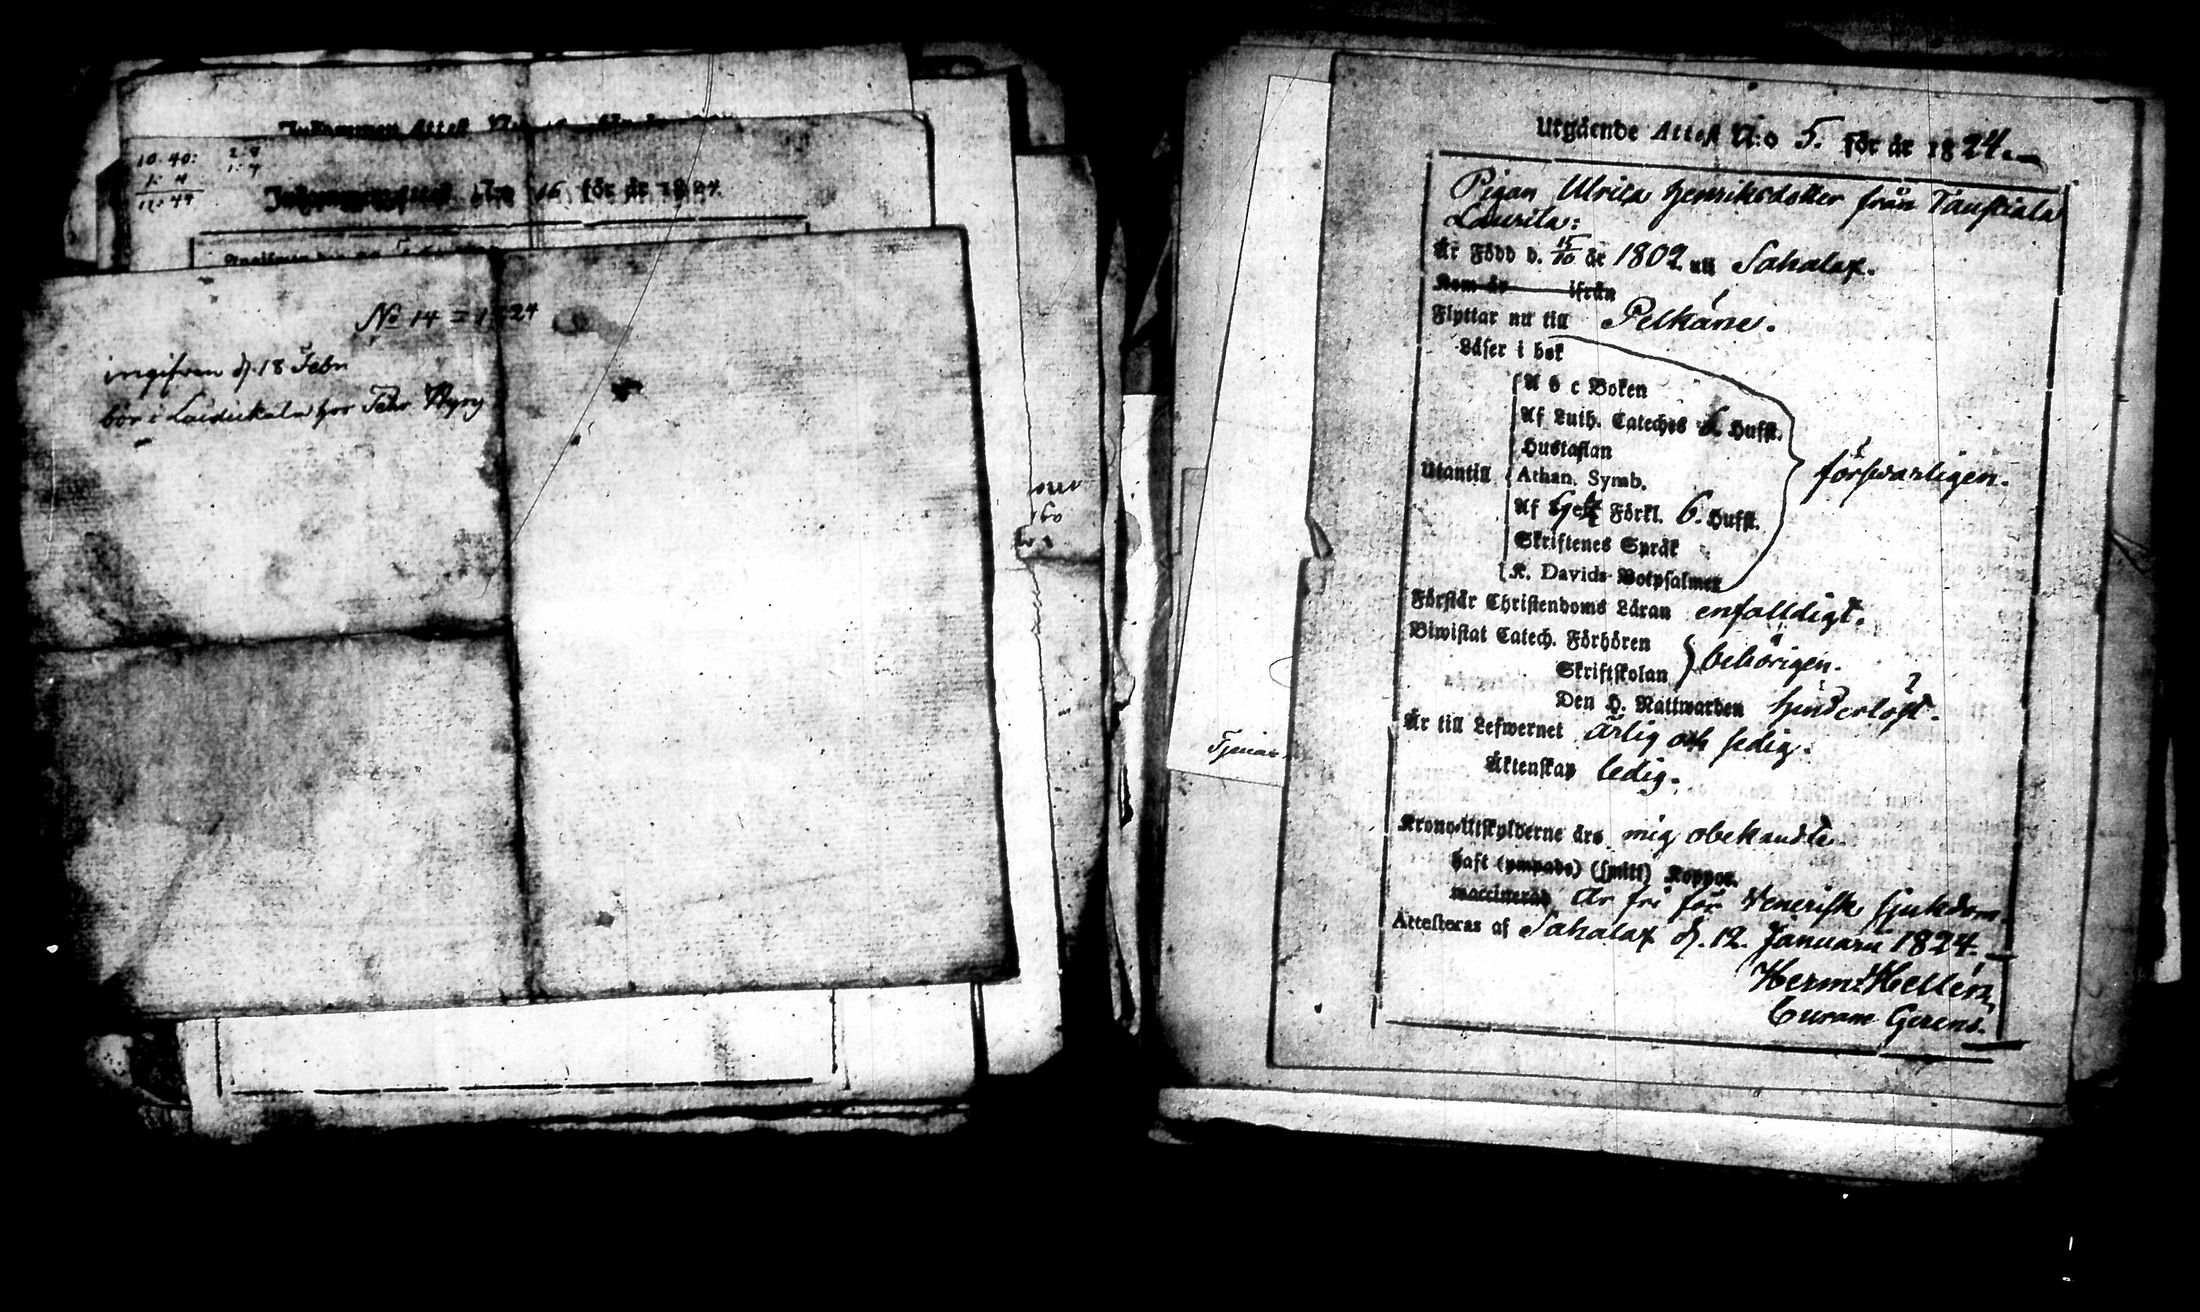 Inkommen Attest N:o
10. 40: 2. 9
1: 4 1: 4
11: 44
Attest N:o 16 för år 1824
N:o 14 = 1824
ingifven d. 18 Febr
bor i Laidickala hos Fehr Hyry
Tjenar
Utgående Attest N:o 5. för år 1824.
Pigan Ulrica Henriksdotter från Taustiala
Laurila:
Är Född d. 15/10 år 1802 uti Sahalax.
Kom år ifrån
Flyttar nu till Pelkäne.
Läser i bok
A b c Boken
Af Luth. Cateches 6. Hufst.
Hustaflan
Utantill Athan. Symb. försvarligen.
Af Förkl. 6. Hufst.
Skriftenes Språk
K. Davids Botpsalmer
Förstår Christendoms Läran enfalldigt.
Biwistat Catech. Förhören
Skriftskolan behörigen.
Den H. Nattwarden hinderlöst.
Är till Lefwernet ärlig och sedig.
Äktenskap ledig.
Krono-Utskylderne äro mig obekandte.
haft (ympade) (smitt) Koppor.
waccinerad Är fri för Venerisk sjukdom.
Attesteras af Sahalax d. 12. Januarii 1824.
Herm: Hellén
Curam Gerens.